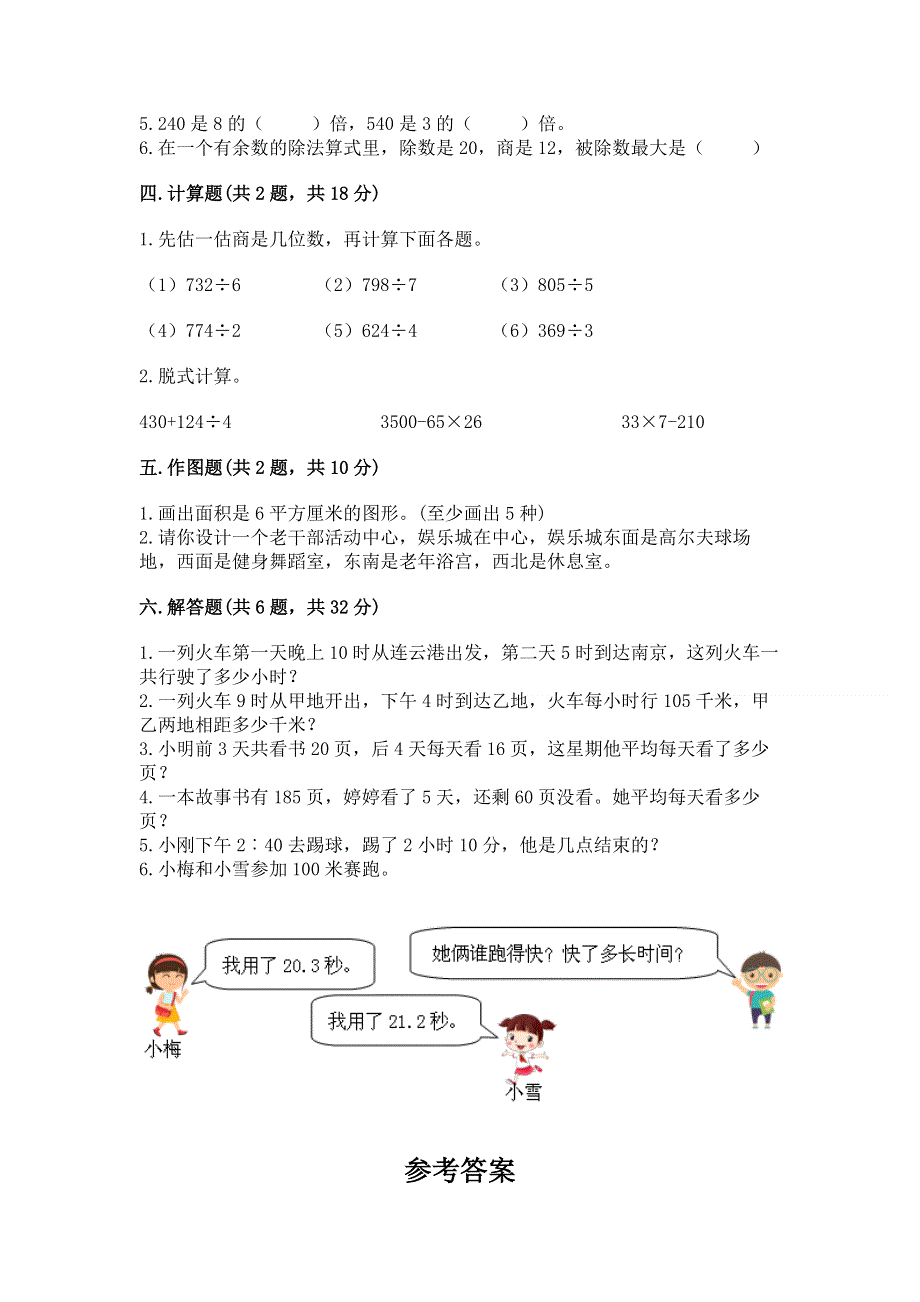 5.240 是 8 的（　　）倍，540 是 3 的（　　）倍。
6.在一个有余数的除法算式里，除数是 20，商是 12，被除数最大是（　　）
四.计算题(共 2 题，共 18 分)
1.先估一估商是几位数，再计算下面各题。
（1）732÷6　（2）798÷7　（3）805÷5
（4）774÷2　（5）624÷4　（6）369÷3
2.脱式计算。
430+124÷4　3500-65×26　33×7-210
五.作图题(共 2 题，共 10 分)
1.画出面积是 6 平方厘米的图形。(至少画出 5 种)
2.请你设计一个老干部活动中心，娱乐城在中心，娱乐城东面是高尔夫球场
地，西面是健身舞蹈室，东南是老年浴宫，西北是休息室。
六.解答题(共 6 题，共 32 分)
1.一列火车第一天晚上 10 时从连云港出发，第二天 5 时到达南京，这列火车一
共行驶了多少小时？
2.一列火车 9 时从甲地开出，下午 4 时到达乙地，火车每小时行 105 千米，甲
乙两地相距多少千米？
3.小明前 3 天共看书 20 页，后 4 天每天看 16 页，这星期他平均每天看了多少
页？
4.一本故事书有 185 页，婷婷看了 5 天，还剩 60 页没看。她平均每天看多少
页？
5.小刚下午 2︰40 去踢球，踢了 2 小时 10 分，他是几点结束的？
6.小梅和小雪参加 100 米赛跑。
她俩谁跑得快？快了多长时间？
我用了 20.3 秒。
我用了 21.2 秒。
小梅
小雪
参考答案